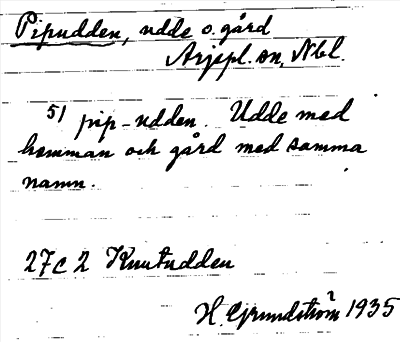 Pipudden, udde o. gård
Arjepl. sn, Nbl.
51 pip-udden. Udde med
hemman och gård med samma
namn.
27c 2 Knutudden
H. Grundström 1935